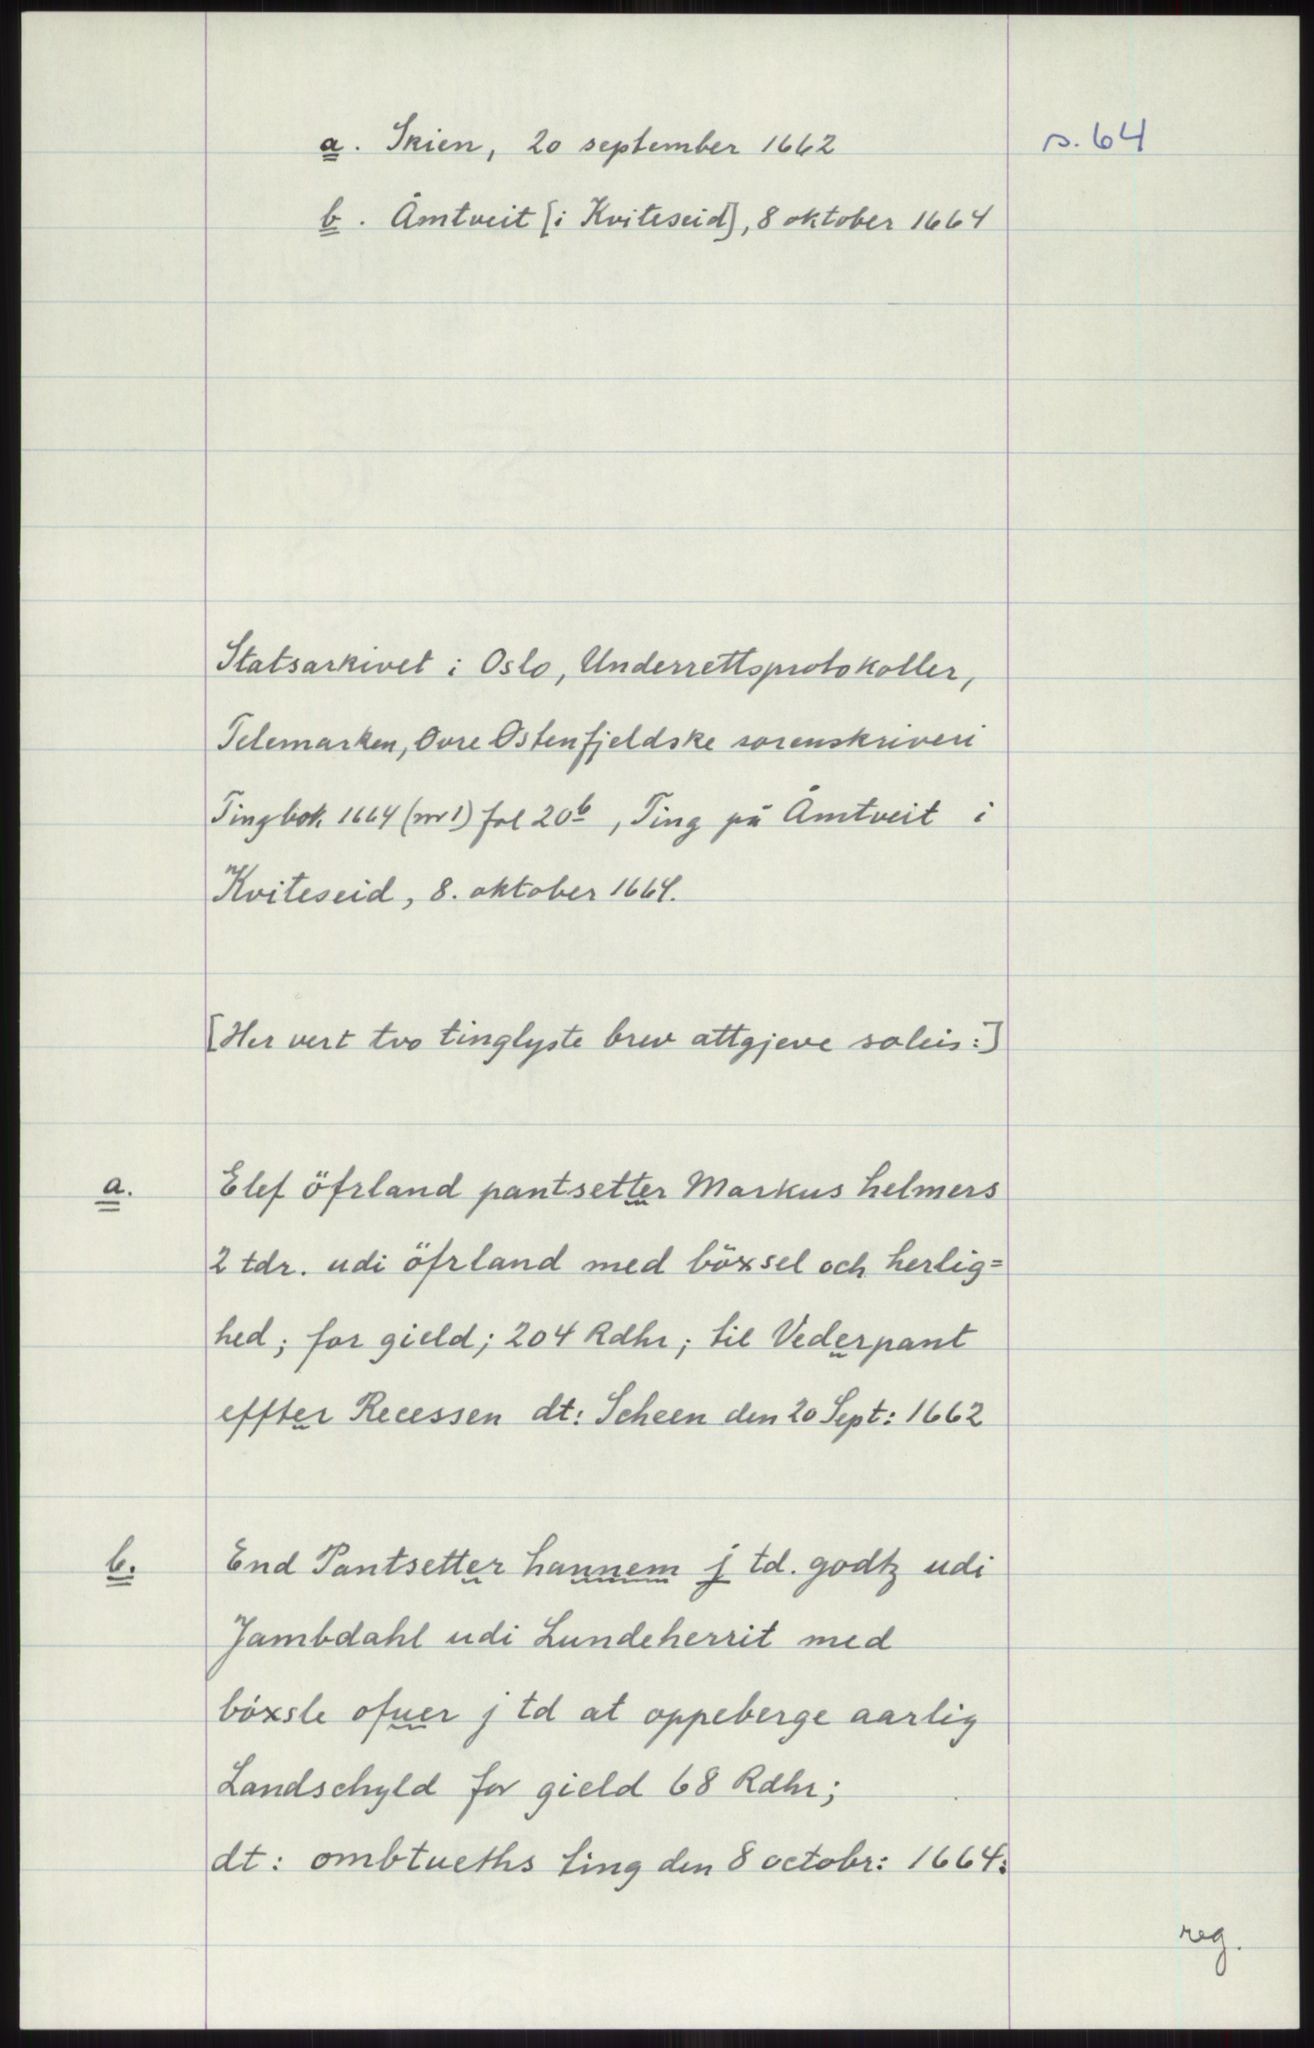 a. Skien, 20 september 1662
s. 64
b. Åmtveit [i Kviteseid], 8 oktober 1664
Statsarkivet i Oslo, Underrettsprotokoller,
Telemarken, Øvre Østenfjeldske sorenskriveri
Tingbok 1664 (nr 1) fol 20b, Ting på Åmtveit i
Kviteseid, 8. oktober 1664.
[Her vert tvo tinglyste brev attgjeve soleis:]
a. Elef öfrland pantsetter Markus helmers
2 tdr. udi öfrland med böxsel och herlig=
hed; for gield; 204 Rdhr; til Vederpant
effter Recessen dt: Scheen den 20 Sept: 1662
b. End Pantsetter hannem j td. godtz udi
Jambdahl udi Lundeherrit med
böxsle ofuer j td at oppeberge aarlig
Landschyld for gield 68 Rdhr;
dt: ombtueths ting den 8 octobr: 1664:
reg.